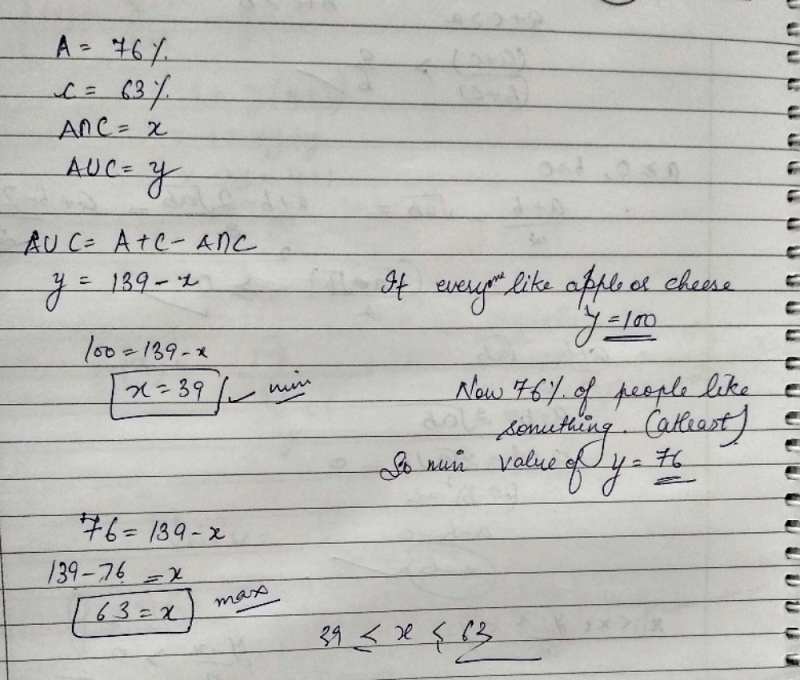 A = 76%.
C = 63%.
A∩C = x
AUC = y
AUC = A+C - A∩C
y = 139 - x
If everyone like apple or cheese
y = 100
100 = 139 - x
x = 39% min
Now 76% of people like
something. (atleast)
So min value of y = 76
76 = 139 - x
139 - 76 = x
63 = x max
39 ≤ x ≤ 63